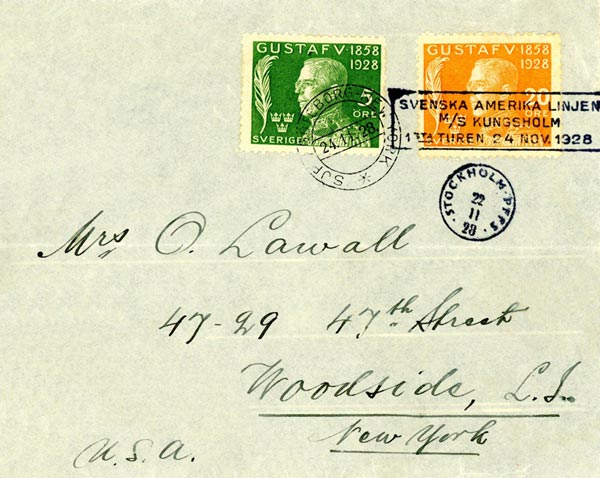 GUSTAF V · 1858
1928
5
ÖRE
SVERIGE
GUSTAF V · 1858
1928
ÖRE
24.11.28
SVENSKA AMERIKA LINJEN
M/S KUNGSHOLM
1STA TUREN 24 NOV. 1928
STOCKHOLM
22
11
28
Mrs O. Lawall
47-29 47th Street
Woodside, L.I.
New York
U.S.A.